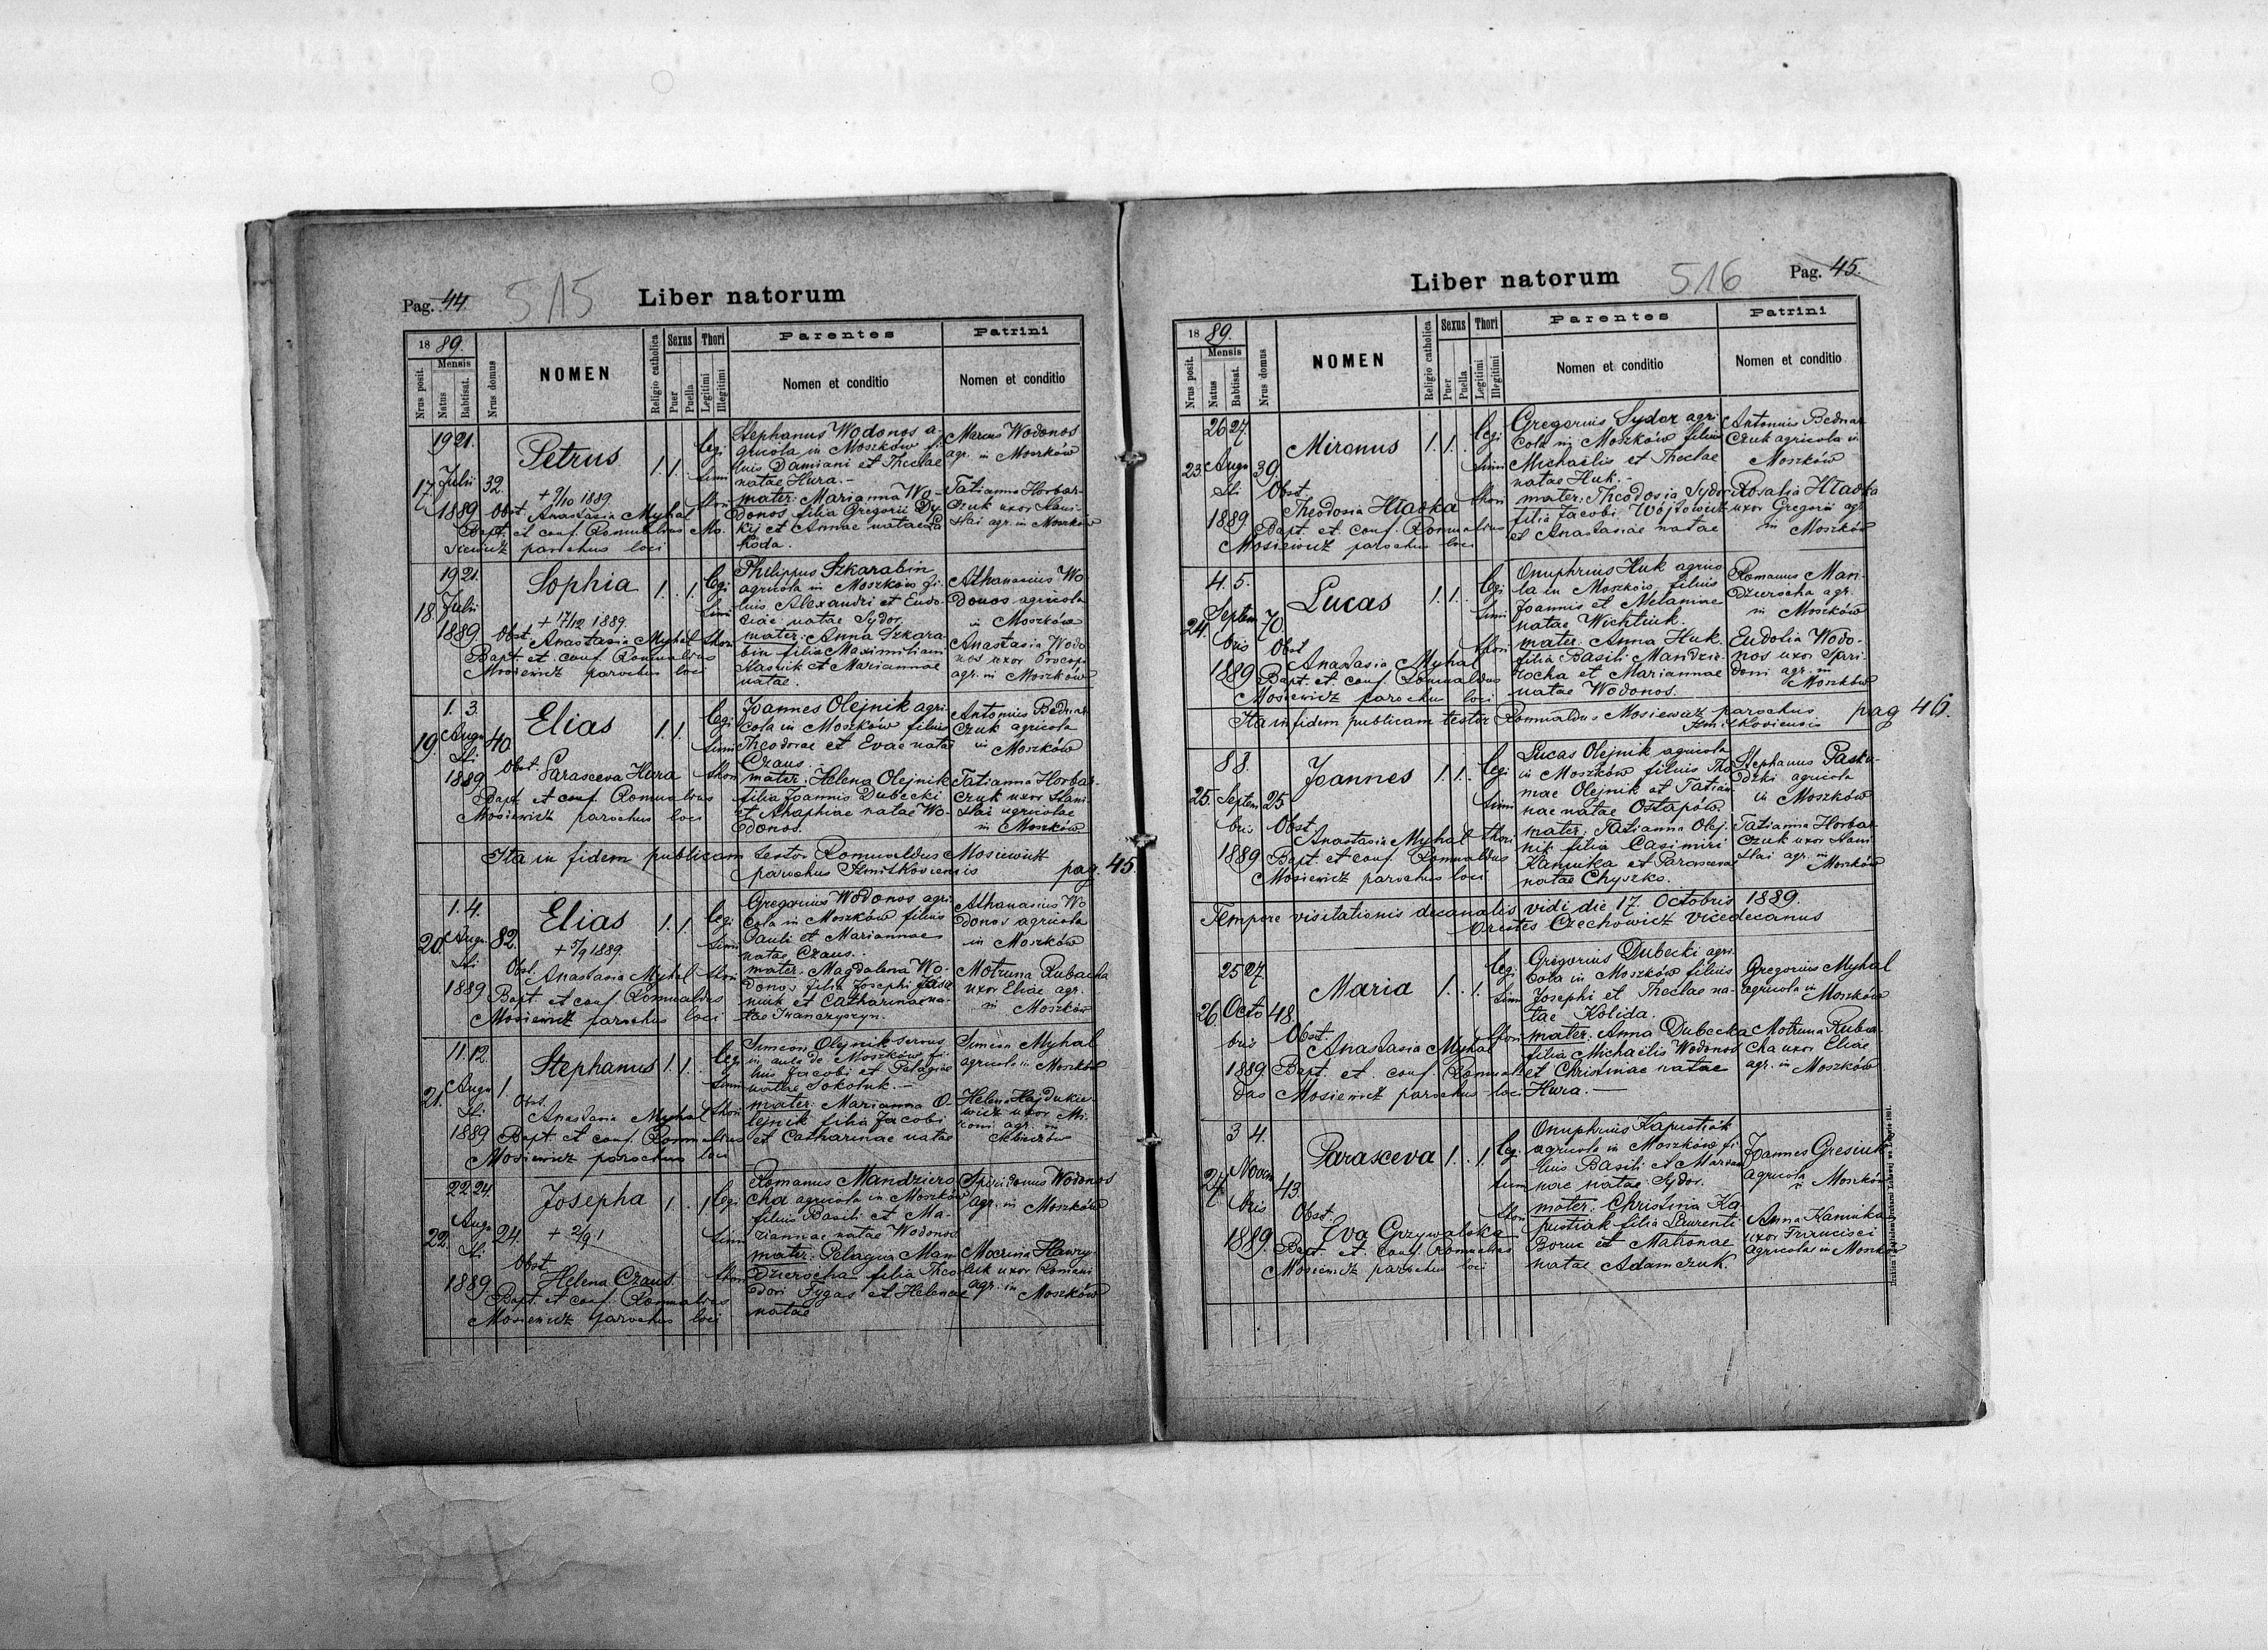 Pag. 44. 515 Liber natorum
18 89. Mensis
Nrus posit. Natus Babtisat. Nrus domus NOMEN Religio catholica Sexus Puer Puella Thori Legitimi Illegitimi Parentes Nomen et conditio Patrini Nomen et conditio
17. 19 21. Julii 1889 32. Petrus 1. 1. legi timi thori
+ 7/10 1889.
Obst. Anastasia Myhal
Bapt. et conf. Romualdus Mo-
siewicz parochus loci
Stephanus Wodonos a-
gricola in Moszków fi-
lius Damiani et Theclae
natae Hura.-
mater: Marianna Wo-
donos filia Gregorii Dy
kij et Annae natae
Marcus Wodonos
agr. in Moszków
Tatianna Horbac-
czuk uxor Stani-
slai agr. in Moszków
18. 19 21. Julii 1889. Sophia 1. 1. legi timi thori
+ 17/12 1889.
Obst. Anastasia Myhal
Bapt. et conf. Romualdus
Mosiewicz parochus loci
Philippus Szkarabin
agricola in Moszków fi-
lius Alexandri et Eudo-
ciae natae Sydor.
mater: Anna Szkara
bin filia Maximiliani
Stasiuk et Mariannae
natae.
Athanasius Wo
donos agricola
in Moszków
Anastasia Wodo
nos uxor Procopi
agr. in Moszków
19. 1. 3. Augu sti 1889 40 Elias 1. 1. legi timi thori
Obst. Parasceva Hura
Bapt. et conf. Romualdus
Mosiewicz parochus loci
Joannes Olejnik agri
cola in Moszków filius
Theodorae et Evae natae
Czaus.
mater: Helena Olejnik
filia Joannis Dubecki
et Ahaphiae natae Wo-
donos.
Antonius Bednar
czuk agricola
in Moszków
Tatianna Horbac-
czuk uxor Stani-
slai agricolae
in Moszków
Ita in fidem publicam testor Romualdus Mosiewicz
parochus Szmitkoviensis pag. 45.
20. 1. 4. Augu sti 1889 82. Elias 1. 1. legi timi thori
+ 5/9 1889.
Obst. Anastasia Myhal
Bapt. et conf. Romualdus
Mosiewicz parochus loci
Gregorius Wodonos agri
cola in Moszków filius
Pauli et Mariannae
natae Czaus.
mater: Magdalena Wo-
donos filia Josephi
niuk et Catharinae na-
tae Iwanczyszyn.
Athanasius Wo
donos agricola
in Moszków
Motruna Rubacha
uxor Eliae agr.
in Moszków
21. 11. 12. Augu sti 1889 1. Stephanus 1. 1. legi timi thori
Obst.
Anastasia Myhal
Bapt. et conf. Romualdus
Mosiewicz parochus loci
Simeon Olejnik servus
in aula de Moszków fi-
lius Jacobi et Pelagiae
natae Sokoluk.-
mater: Marianna O-
lejnik filia Jacobi
et Catharinae natae
Simeon Myhal
agricola in Moszków
Helena Hajdukie-
wicz uxor Mi-
roni agr. in
22. 22 24. Augu sti 1889. 24. Josepha 1. 1. legi timi thori
+ 2/9 1
Obst.
Helena Czaus.
Bapt. et conf. Romualdus
Mosiewicz parochus loci
Romanus Mandziero
cha agricola in Moszków
filius Basili et Ma-
riannae natae Wodonos
mater: Pelagia Man
dzierocha filia Theo
dori Fygas et Helenae
natae
Spiridonus Wodonos
agr. in Moszków
Macrina Hawry-
luk uxor Romani
agr. in Moszków
Liber natorum 516 Pag. 45.
18 89. Mensis
Nrus posit. Natus Babtisat. Nrus domus NOMEN Religio catholica Sexus Puer Puella Thori Legitimi Illegitimi Parentes Nomen et conditio Patrini Nomen et conditio
23. 26 27. Augu sti 1889 39 Mironus 1. 1. legi timi thori
Obst.
Theodosia Hładka
Bapt. et conf. Romualdus
Mosiewicz parochus loci
Gregorius Sydor agri
cola in Moszków filius
Michaelis et Theclae
natae Huk.-
mater: Theodosia Sydor
filia Jacobi Wójtowicz
et Anastasiae natae
Antonius Bednar
czuk agricola in
Moszków
Rosalia Hładka
uxor Gregorii agr.
in Moszków
24. 4. 5. Septem bris 1889 70 Lucas 1. 1. legi timi thori
Obst
Anastasia Myhal
Bapt. et conf. Romualdus
Mosiewicz parochus loci
Onuphrius Huk agrico
la in Moszków filius
Joannis et Melaniae
natae Wichtiuk.
mater: Anna Huk.
filia Basili Mandzie-
rocha et Mariannae
natae Wodonos.
Romanus Man-
dzierocha agr.
in Moszków
Eudokia Wodo-
nos uxor Spiri-
doni agr. in
Moszków
Ita in fidem publicam testor Romualdus Mosiewicz parochus
Szmitkoviensis pag 46.
25. 8 8. Septem bris 1889 25 Joannes 1. 1. legi timi thori
Obst.
Anastasia Myhal
Bapt. et conf. Romualdus
Mosiewicz parochus loci
Lucas Olejnik agricola
in Moszków filius Tho
mae Olejnik et Tatian
nae natae Ostapów.
mater: Tatianna Olej-
nik filia Casimiri
Kaminka et Parascevae
natae Chyszko.
Stephanus Pasku-
dzki agricola
in Moszków
Tatianna Horbac
czuk uxor Stani
slai agr. in
Moszków
Tempore visitationis decanalis vidi die 17. Octobris 1889.
Orestes Czechowicz Vicedecanus
26. 25 27. Octo bris 1889 48. Maria 1. 1. legi timi thori
Obst.
Anastasia Myhal
Bapt. et conf. Romual-
dus Mosiewicz parochus loci
Gregorius Dubecki agri-
cola in Moszków filius
Josephi et Theclae na-
tae Kolida.
mater: Anna Dubecka
filia Michaelis Wodonos
et Christinae natae
Hura.-
Gregorius Myhal
agricola in
Moszków
Motruna Ruba-
cha uxor Eliae
agr. in Moszków
27. 3 4. Novem bris 1889. 43. Parasceva 1. 1. legi timi thori
Obst.
Eva Grzywalska
Bapt. et conf. Romualdus
Mosiewicz parochus loci
Onuphrius Kapustiak
agricola in Moszków fi-
lius Basili et Marian
nae natae Sydor.
mater: Christina Ka
pustiak filia Laurenti
Boruc et Matronae
natae Adamczuk.
Joannes Gresiuk
agricola
in Moszków
Anna Kaminka
uxor Francisci
agricolae in Moszków